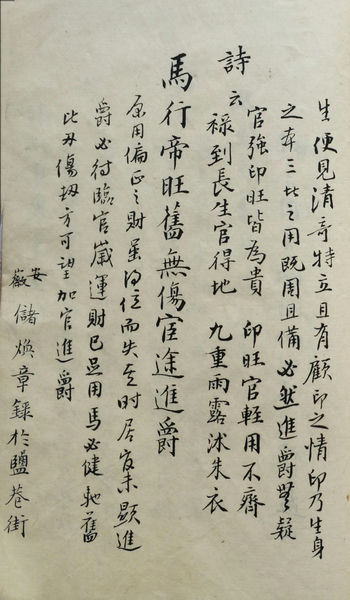 生便見清奇特立且有顧印之情印乃生身
之本三比之用既周且備必然進爵無疑
詩云
官強印旺皆為貴　印旺官輕用不齊
祿到長生官得地　九重雨露沐朱衣
馬行帝旺舊無傷宦途進爵
原用偏正之財虽得位而失其時居官未顯進
爵必待臨官歲運財已显用馬必健馳舊
比刃傷劫方可望加官進爵
安徽儲煥章錄於鹽巷街